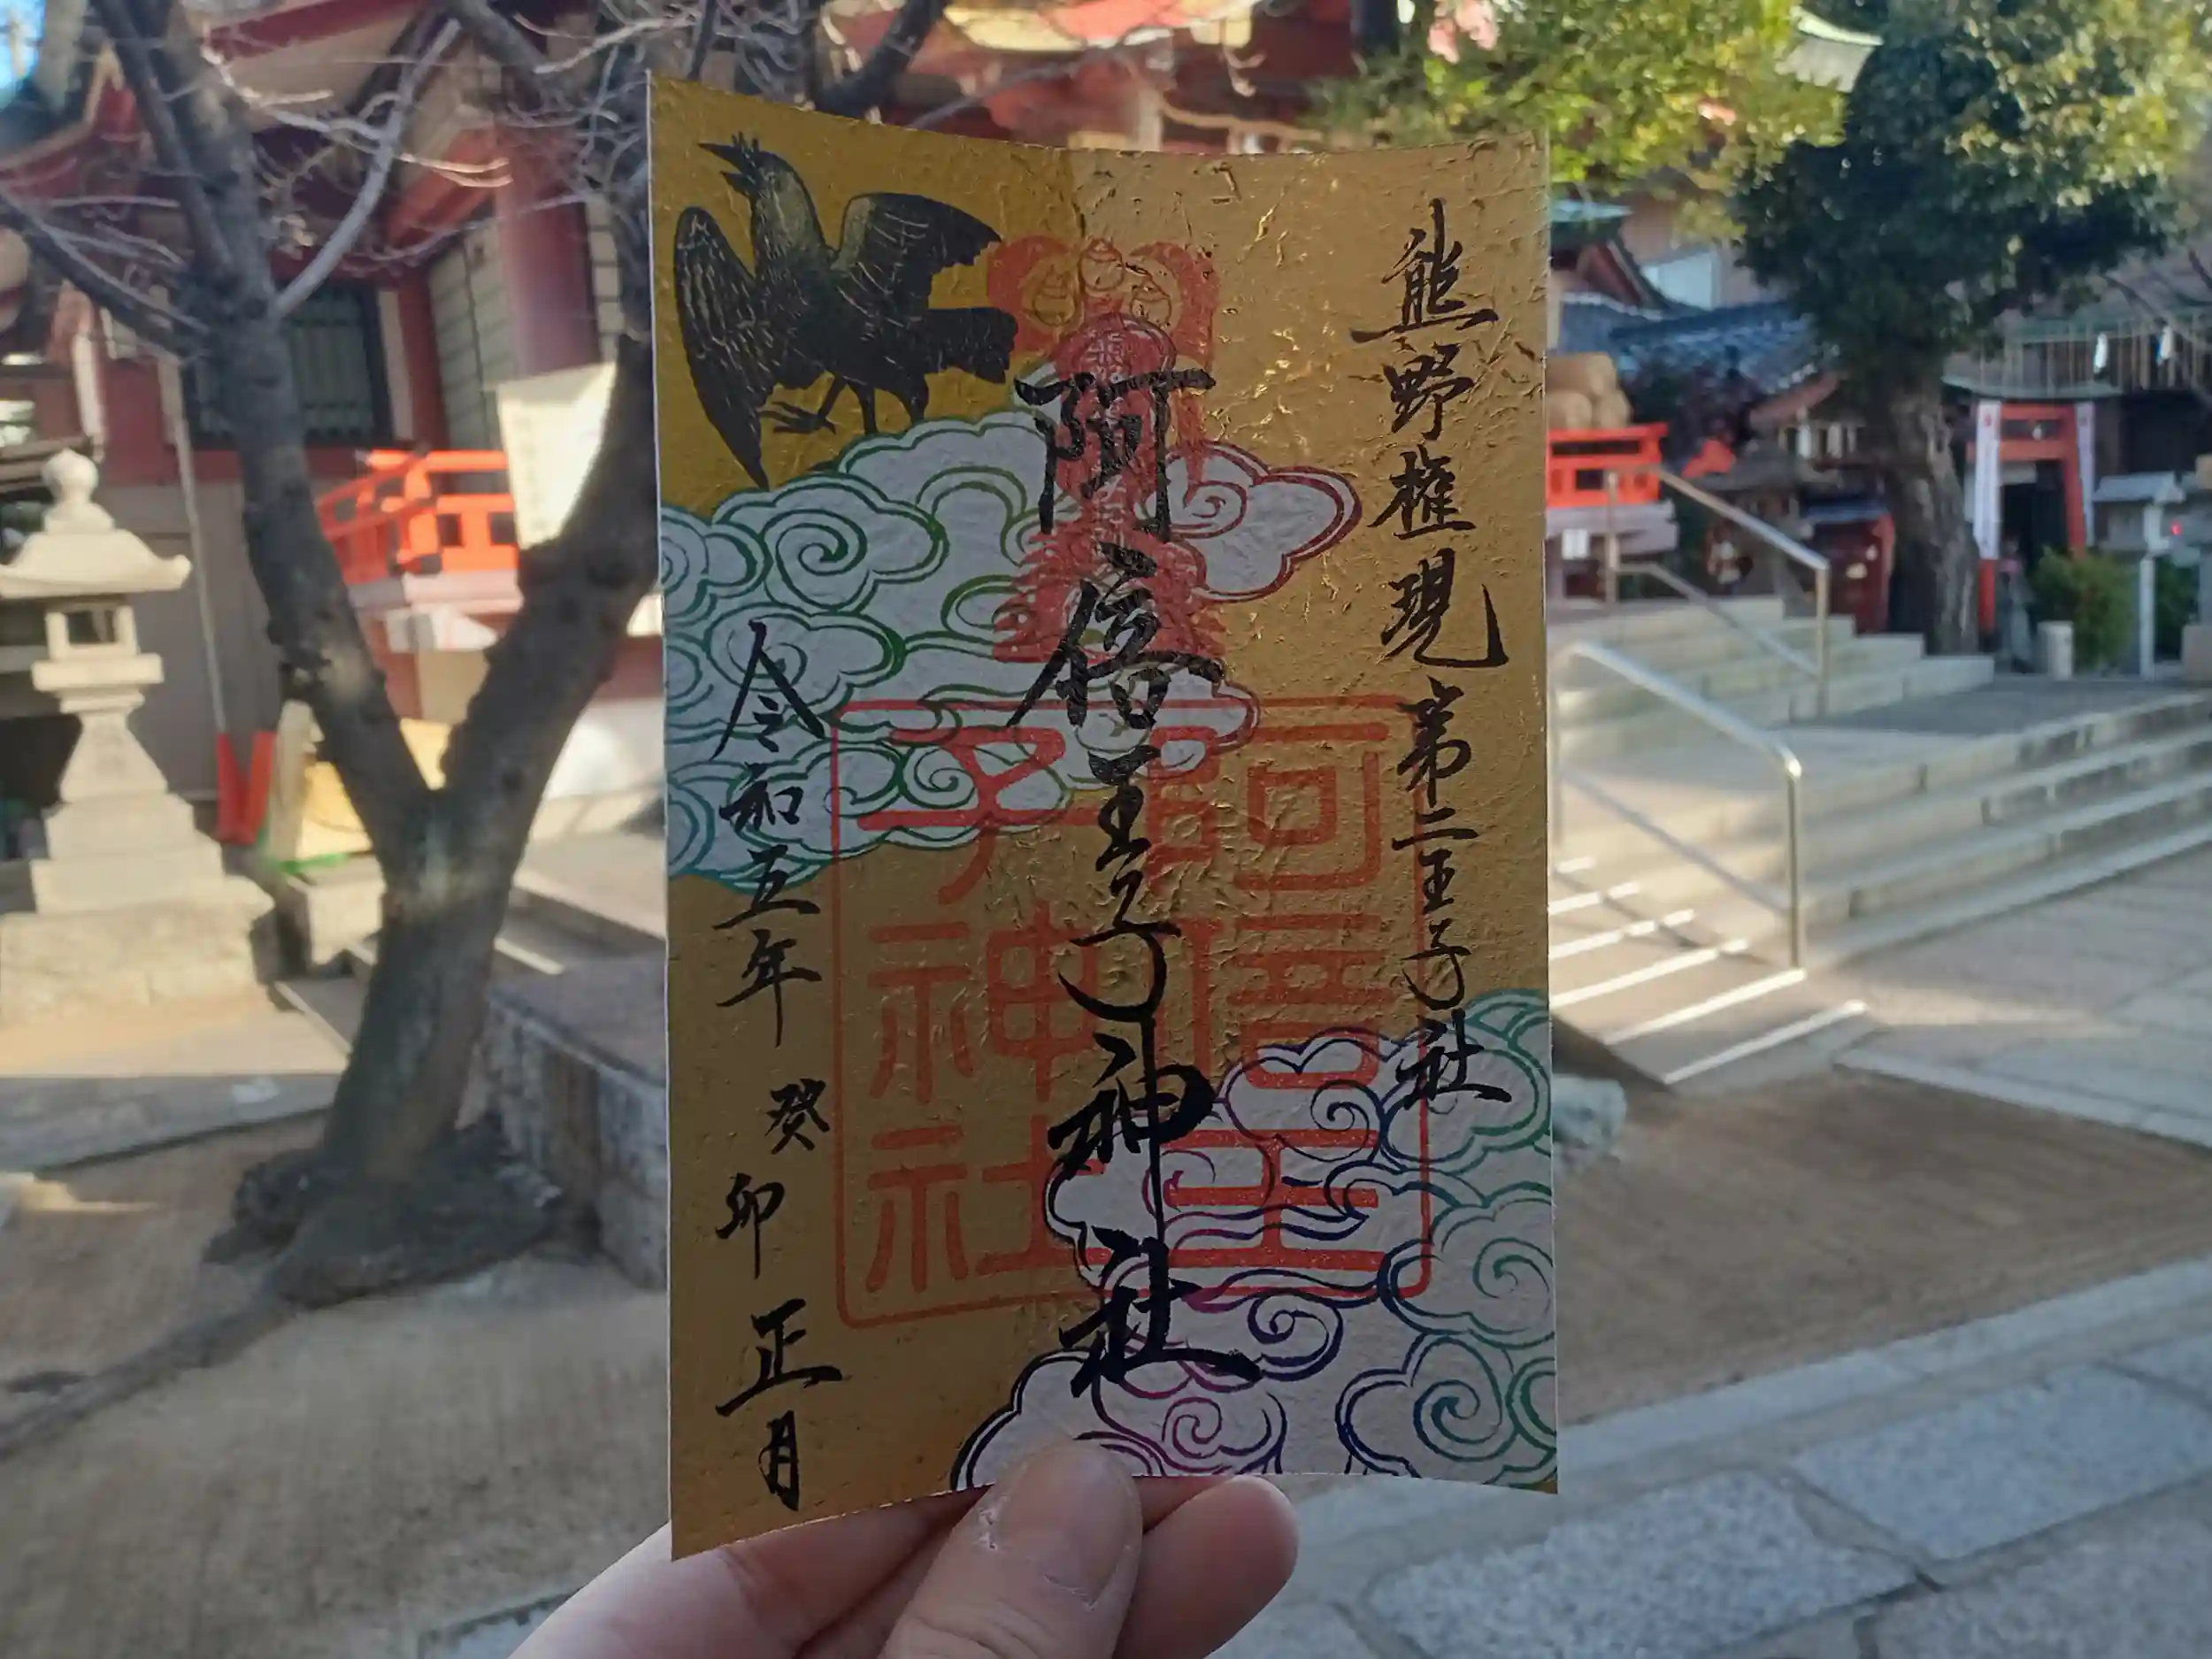 熊野権現第二王子社
阿倍王子神社
令和五年 癸卯 正月
阿倍王
子神社